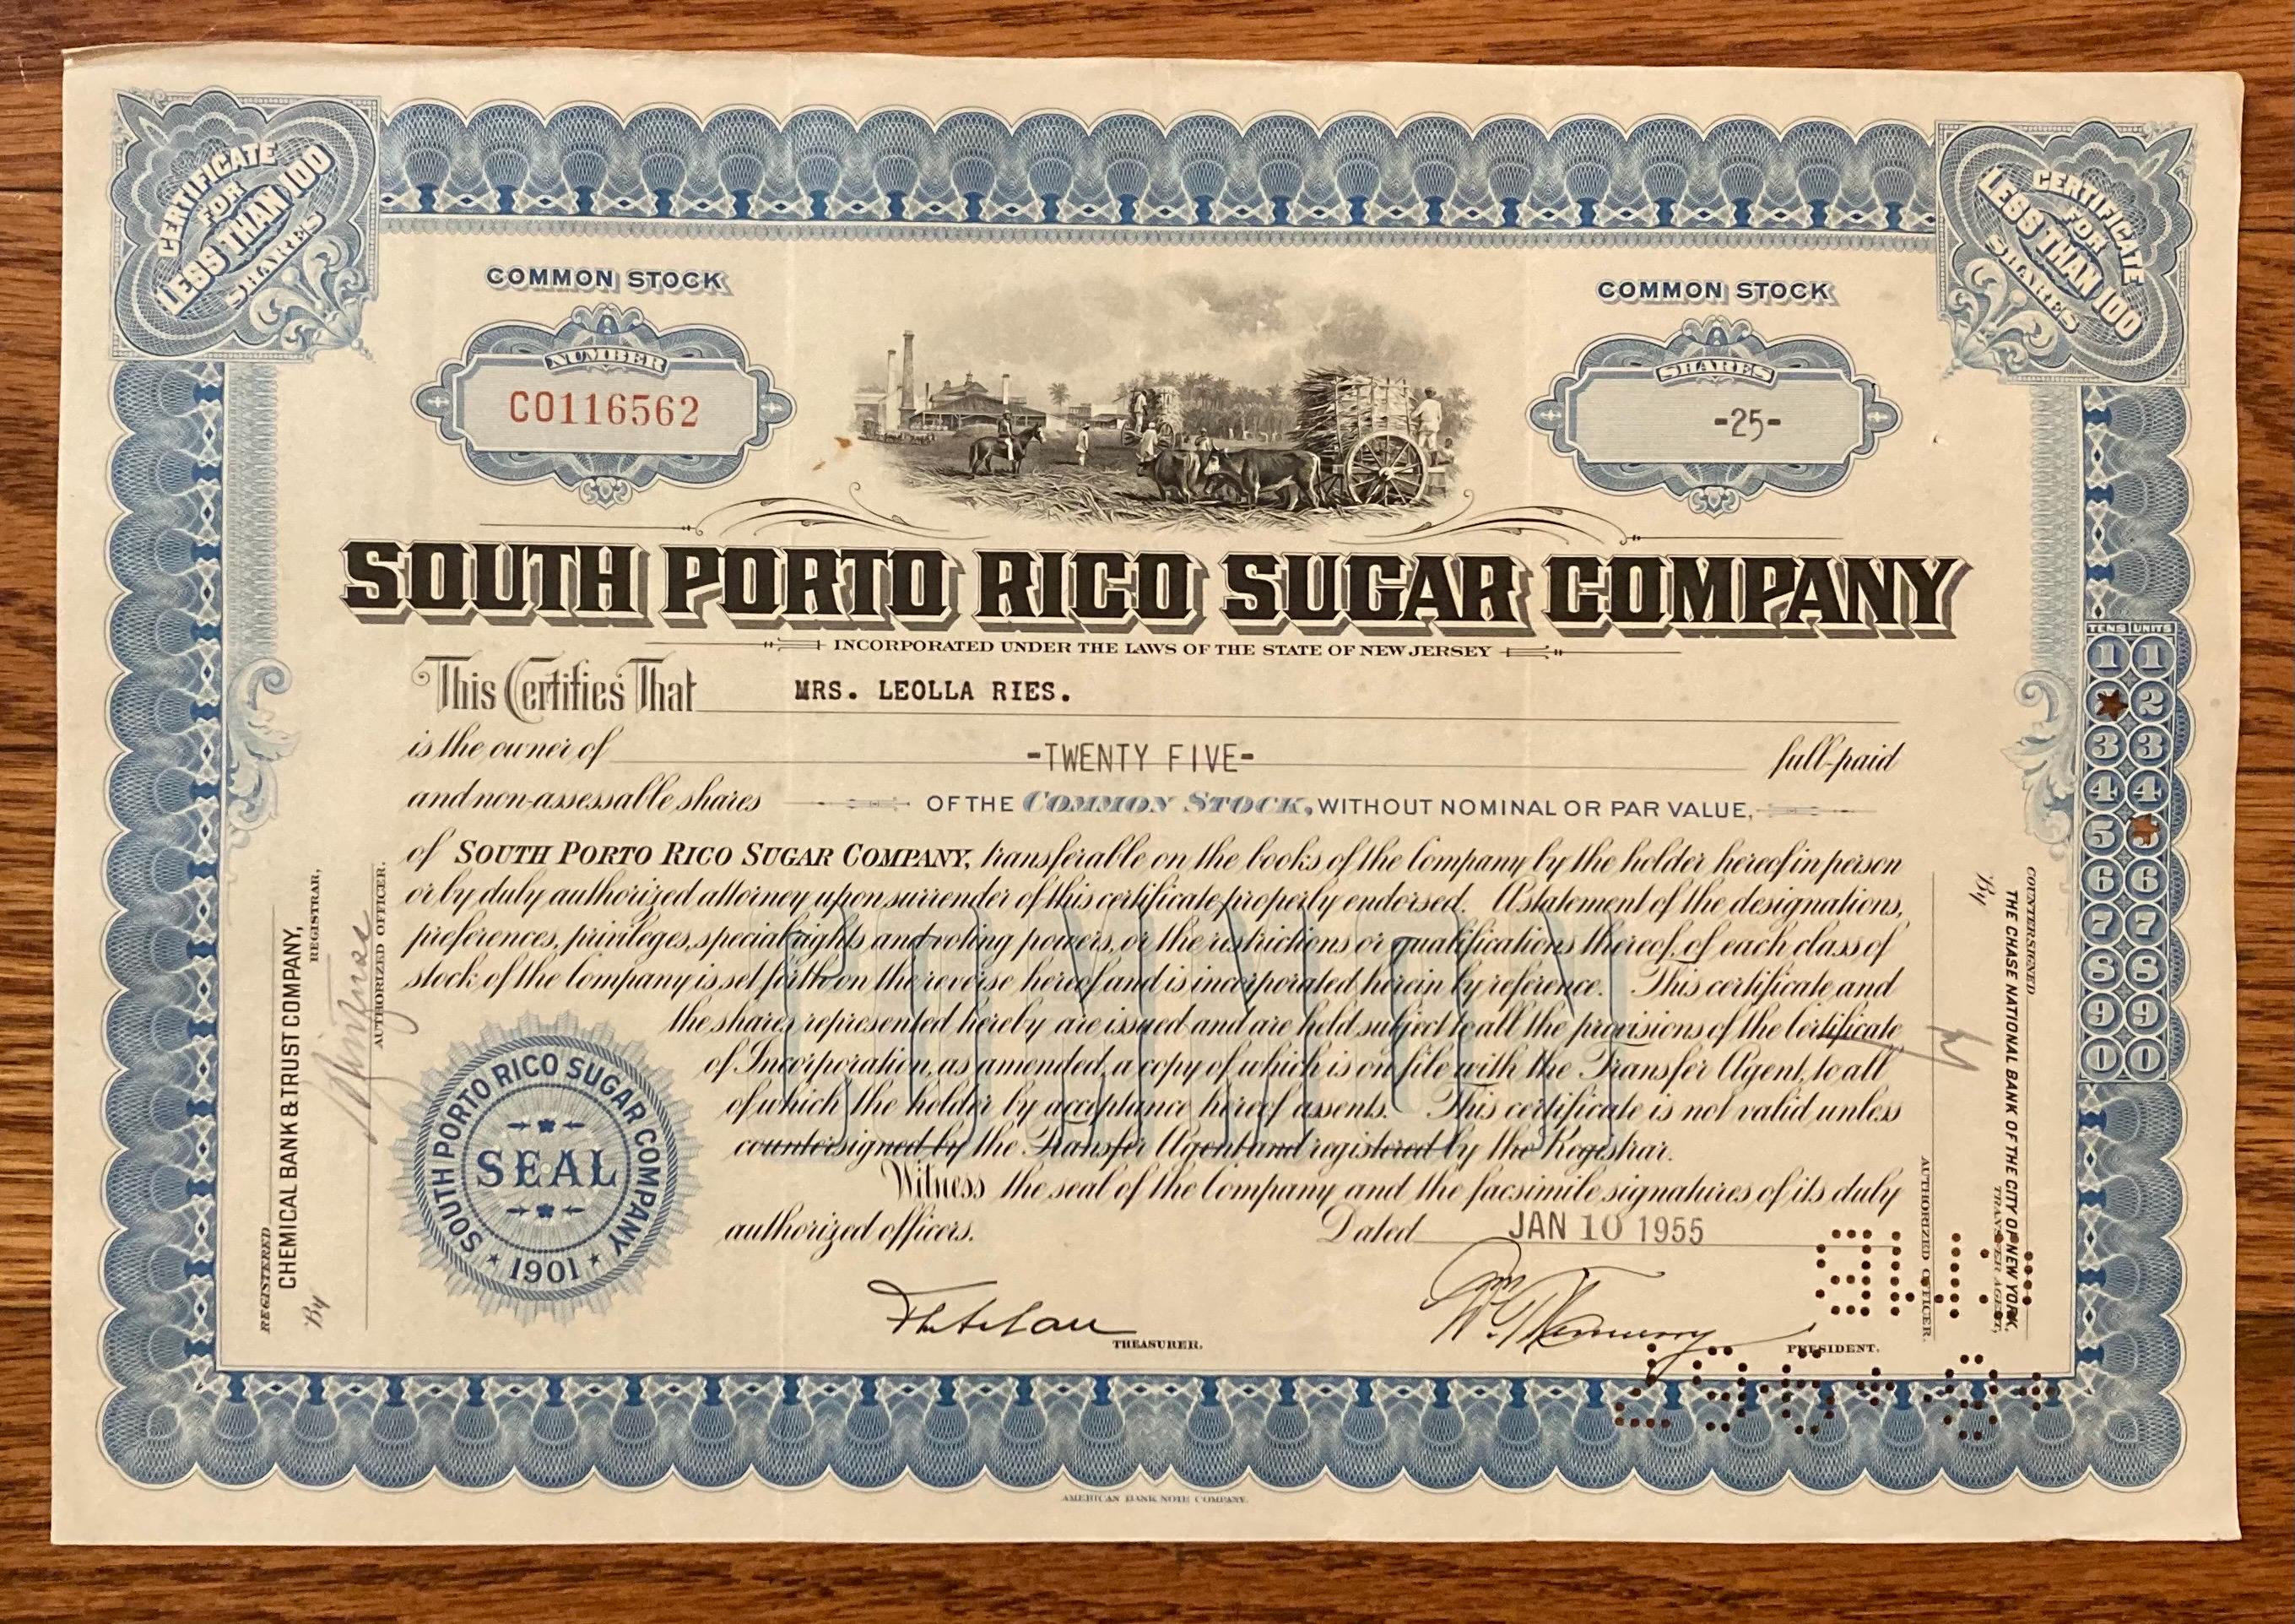 CERTIFICATE
FOR
LESS THAN 100
SHARES
CERTIFICATE
FOR
LESS THAN 100
SHARES
COMMON STOCK
COMMON STOCK
NUMBER
CO116562
SHARES
-25-
SOUTH PORTO RICO SUGAR COMPANY
INCORPORATED UNDER THE LAWS OF THE STATE OF NEW JERSEY
This Certifies That MRS. LEOLLA RIES.
is the owner of -TWENTY FIVE- full-paid
and non-assessable shares OF THE COMMON STOCK, WITHOUT NOMINAL OR PAR VALUE,
of SOUTH PORTO RICO SUGAR COMPANY, transferable on the books of the Company by the holder hereof in person
or by duly authorized attorney upon surrender of this certificate properly endorsed. A statement of the designations,
preferences, privileges, special rights and voting powers, or the restrictions or qualifications thereof, of each class of
stock of the Company is set forth on the reverse hereof and is incorporated herein by reference. This certificate and
the shares represented hereby are issued and are held subject to all the provisions of the Certificate
of Incorporation, as amended, a copy of which is on file with the Transfer Agent, to all
of which the holder by acceptance hereof assents. This certificate is not valid unless
countersigned by the Transfer Agent and registered by the Registrar.
Witness the seal of the Company and the facsimile signatures of its duly
authorized officers. Dated JAN 10 1955
TREASURER.
PRESIDENT.
SOUTH PORTO RICO SUGAR COMPANY
SEAL
1901
REGISTERED
CHEMICAL BANK & TRUST COMPANY,
REGISTRAR,
By
AUTHORIZED OFFICER.
COUNTERSIGNED
THE CHASE NATIONAL BANK OF THE CITY OF NEW YORK,
TRANSFER AGENT,
By
AUTHORIZED OFFICER.
TENS UNITS
1 1
2
3 3
4 4
5
6 6
7 7
8 8
9 9
0 0
AMERICAN BANK NOTE COMPANY.